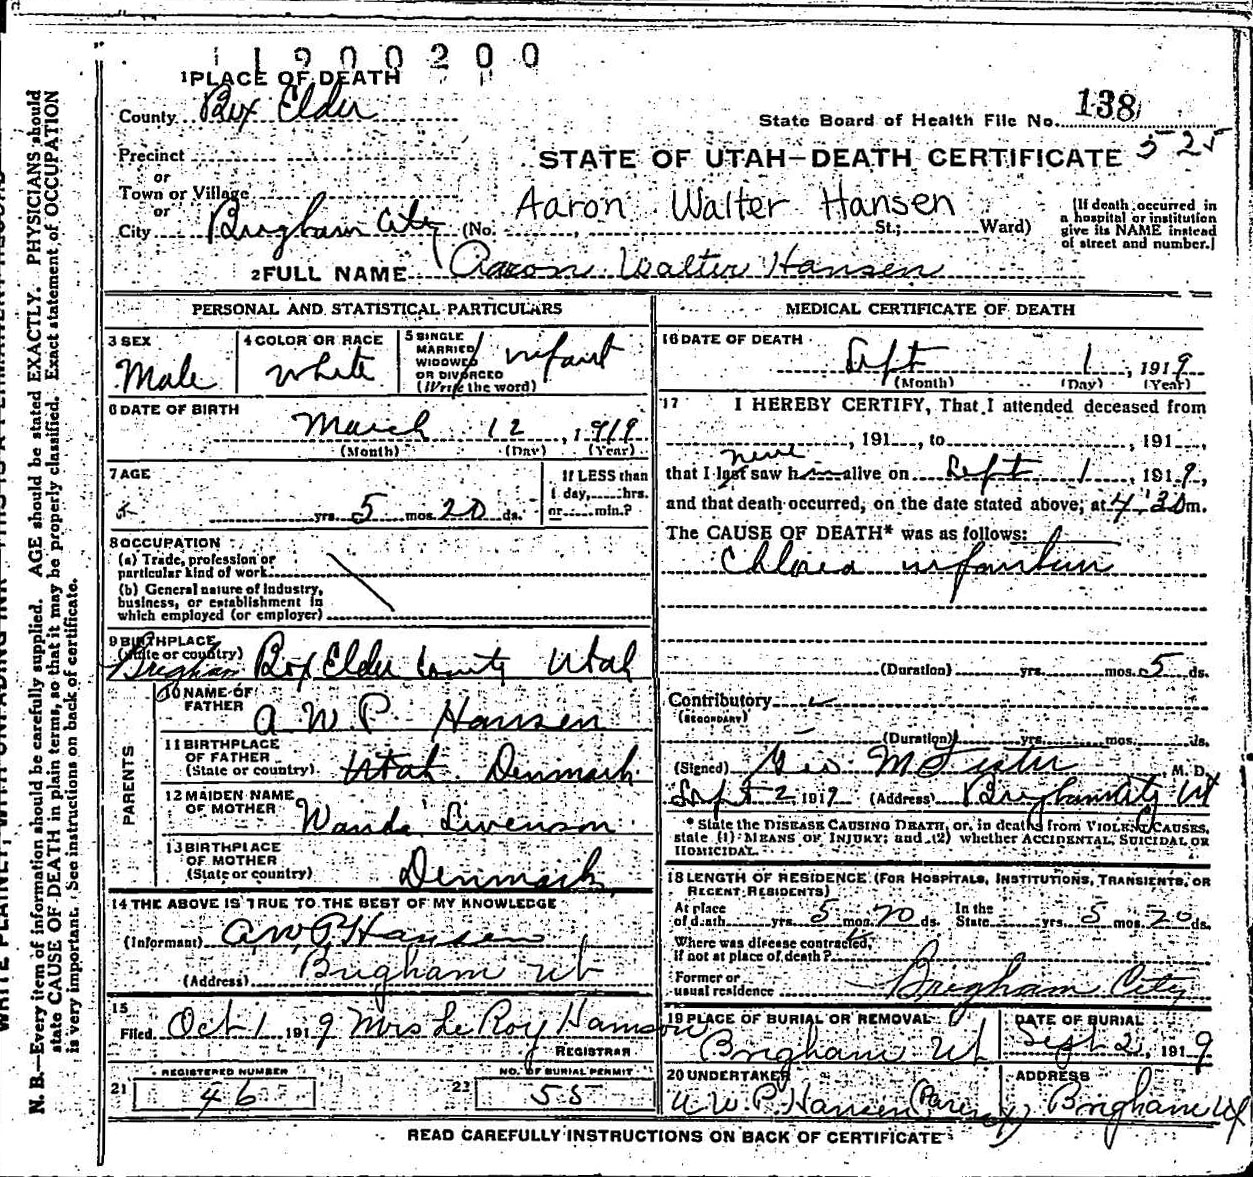 1900200
1 PLACE OF DEATH
County Box Elder
State Board of Health File No. 138
525
Precinct
or
Town or Village
or
City Brigham City (No. St.; Ward)
STATE OF UTAH—DEATH CERTIFICATE
Aaron Walter Hansen
[If death occurred in
a hospital or institution
give its NAME instead
of street and number.]
2 FULL NAME Aaron Walter Hansen
PERSONAL AND STATISTICAL PARTICULARS
3 SEX
Male
4 COLOR OR RACE
White
5 SINGLE
MARRIED
WIDOWED
OR DIVORCED
(Write the word)
infant
6 DATE OF BIRTH
March 12, 1919
(Month) (Day) (Year)
7 AGE
yrs. 5 mos. 20 ds.
If LESS than
1 day, hrs.
or min.?
8 OCCUPATION
(a) Trade, profession or
particular kind of work
(b) General nature of industry,
business, or establishment in
which employed (or employer)
9 BIRTHPLACE
(State or country)
Brigham Box Elder County Utah
PARENTS
10 NAME OF
FATHER
A W P Hansen
11 BIRTHPLACE
OF FATHER
(State or country) Utah Denmark
12 MAIDEN NAME
OF MOTHER
Wanda
13 BIRTHPLACE
OF MOTHER
(State or country) Denmark
14 THE ABOVE IS TRUE TO THE BEST OF MY KNOWLEDGE
(Informant) A.W.P. Hansen
(Address) Brigham Ut
15
Filed Oct 1 1919 Mrs Le Roy Hamson
REGISTRAR
REGISTERED NUMBER
21 46
NO. OF BURIAL PERMIT
22 55
MEDICAL CERTIFICATE OF DEATH
16 DATE OF DEATH
Sept 1, 1919
(Month) (Day) (Year)
17 I HEREBY CERTIFY, That I attended deceased from
, 191 , to , 191 ,
never
that I last saw him alive on Sept 1, 1919,
and that death occurred, on the date stated above, at 4:30 m.
The CAUSE OF DEATH* was as follows:
Cholera infantum
(Duration) yrs. mos. 5 ds.
Contributory
(SECONDARY)
(Duration) yrs. mos. ds.
(Signed) Geo. M Fister, M. D.
Sept 2, 1919 (Address) Brigham City Ut
* State the DISEASE CAUSING DEATH, or, in deaths from VIOLENT CAUSES,
state (1) MEANS OF INJURY; and (2) whether ACCIDENTAL, SUICIDAL OR
HOMICIDAL.
18 LENGTH OF RESIDENCE (FOR HOSPITALS, INSTITUTIONS, TRANSIENTS, OR
RECENT RESIDENTS)
At place
of death yrs. 5 mos. 20 ds. In the
State yrs. 5 mos. 20 ds.
Where was disease contracted,
if not at place of death?
Former or
usual residence Brigham City
19 PLACE OF BURIAL OR REMOVAL
Brigham Ut
DATE OF BURIAL
Sept 2, 1919
20 UNDERTAKER
A W P Hansen (Parent)
ADDRESS
Brigham Ut
READ CAREFULLY INSTRUCTIONS ON BACK OF CERTIFICATE
N. B.—Every item of information should be carefully supplied. AGE should be stated EXACTLY. PHYSICIANS should
state CAUSE OF DEATH in plain terms, so that it may be properly classified. Exact statement of OCCUPATION
is very important. See instructions on back of certificate.